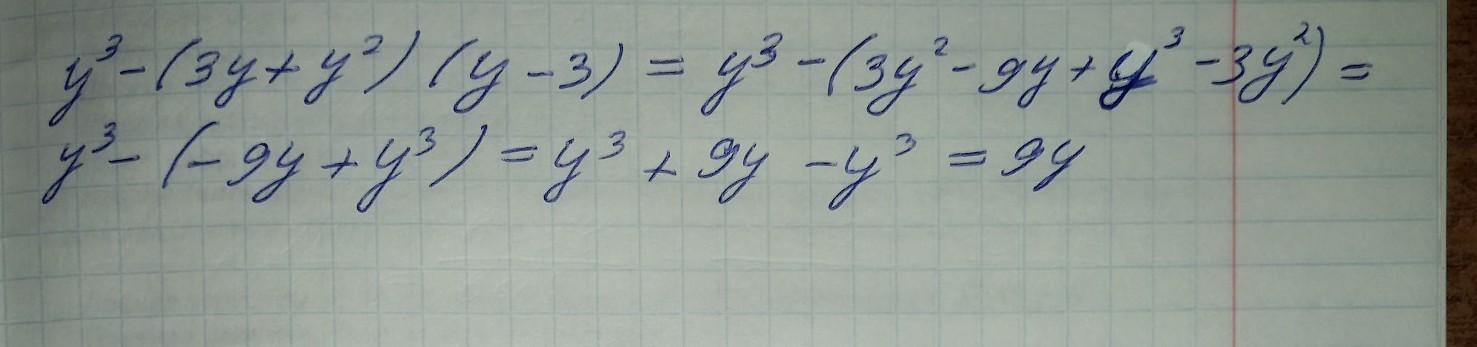 y³-(3y+y²)(y-3)=y³-(3y²-9y+y³-3y²)=
y³-(-9y+y³)=y³+9y-y³=9y